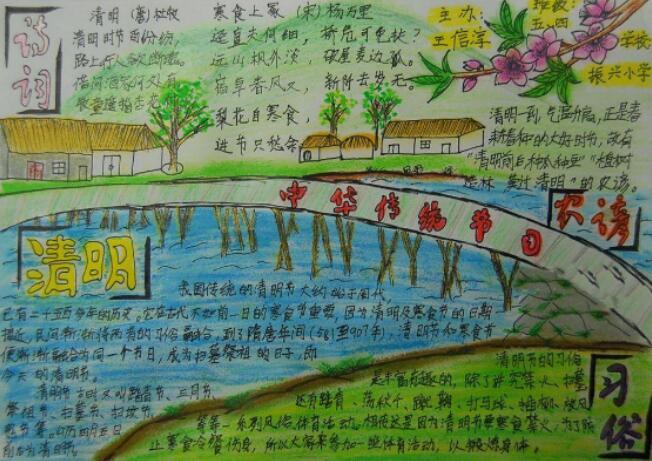 诗词
清明 (唐) 杜牧
清明时节雨纷纷
路上行人欲断魂
借问酒家何处有
牧童遥指杏花村
寒食上冢 (宋) 杨万里
迳直夫何细, 桥危可免扶?
远山枫外淡, 破屋麦边孤。
宿草春风又, 新阡去岁无。
梨花自寒食,
进节只愁余
主办:
王信淳
班级:
五、四
学校
振兴小学
清明一到,气温升高,正是春
耕春种的大好时节,故有
"清明前后,种瓜种豆""植树
造林,莫过清明"的农谚。
农谚
中华传统节日
清明
我国传统的清明节大约始于周代,
已有二千五百多年的历史,它在古代不如前一日的寒食节重要,因为清明及寒食节的日期
接近,民间渐渐将两者的习俗融合,到了隋唐年间(581至907年),清明节和寒食节
便渐渐融合为同一个节日,成为扫墓祭祖的日子,即
今天的清明节。
清明节古时又叫踏青节、三月节、
祭祖节、扫墓节、扫坟节、
鬼节等。公历四月五日
前后为清明节。
习俗
清明节的习俗
是丰富有趣的,除了讲究禁火、扫墓
还有踏青、荡秋千、蹴鞠、打马球、插柳、放风
筝等一系列风俗体育活动。相传这是因为清明节要寒食禁火,为了防
止寒食冷餐伤身,所以大家来参加一些体育活动,以锻炼身体。